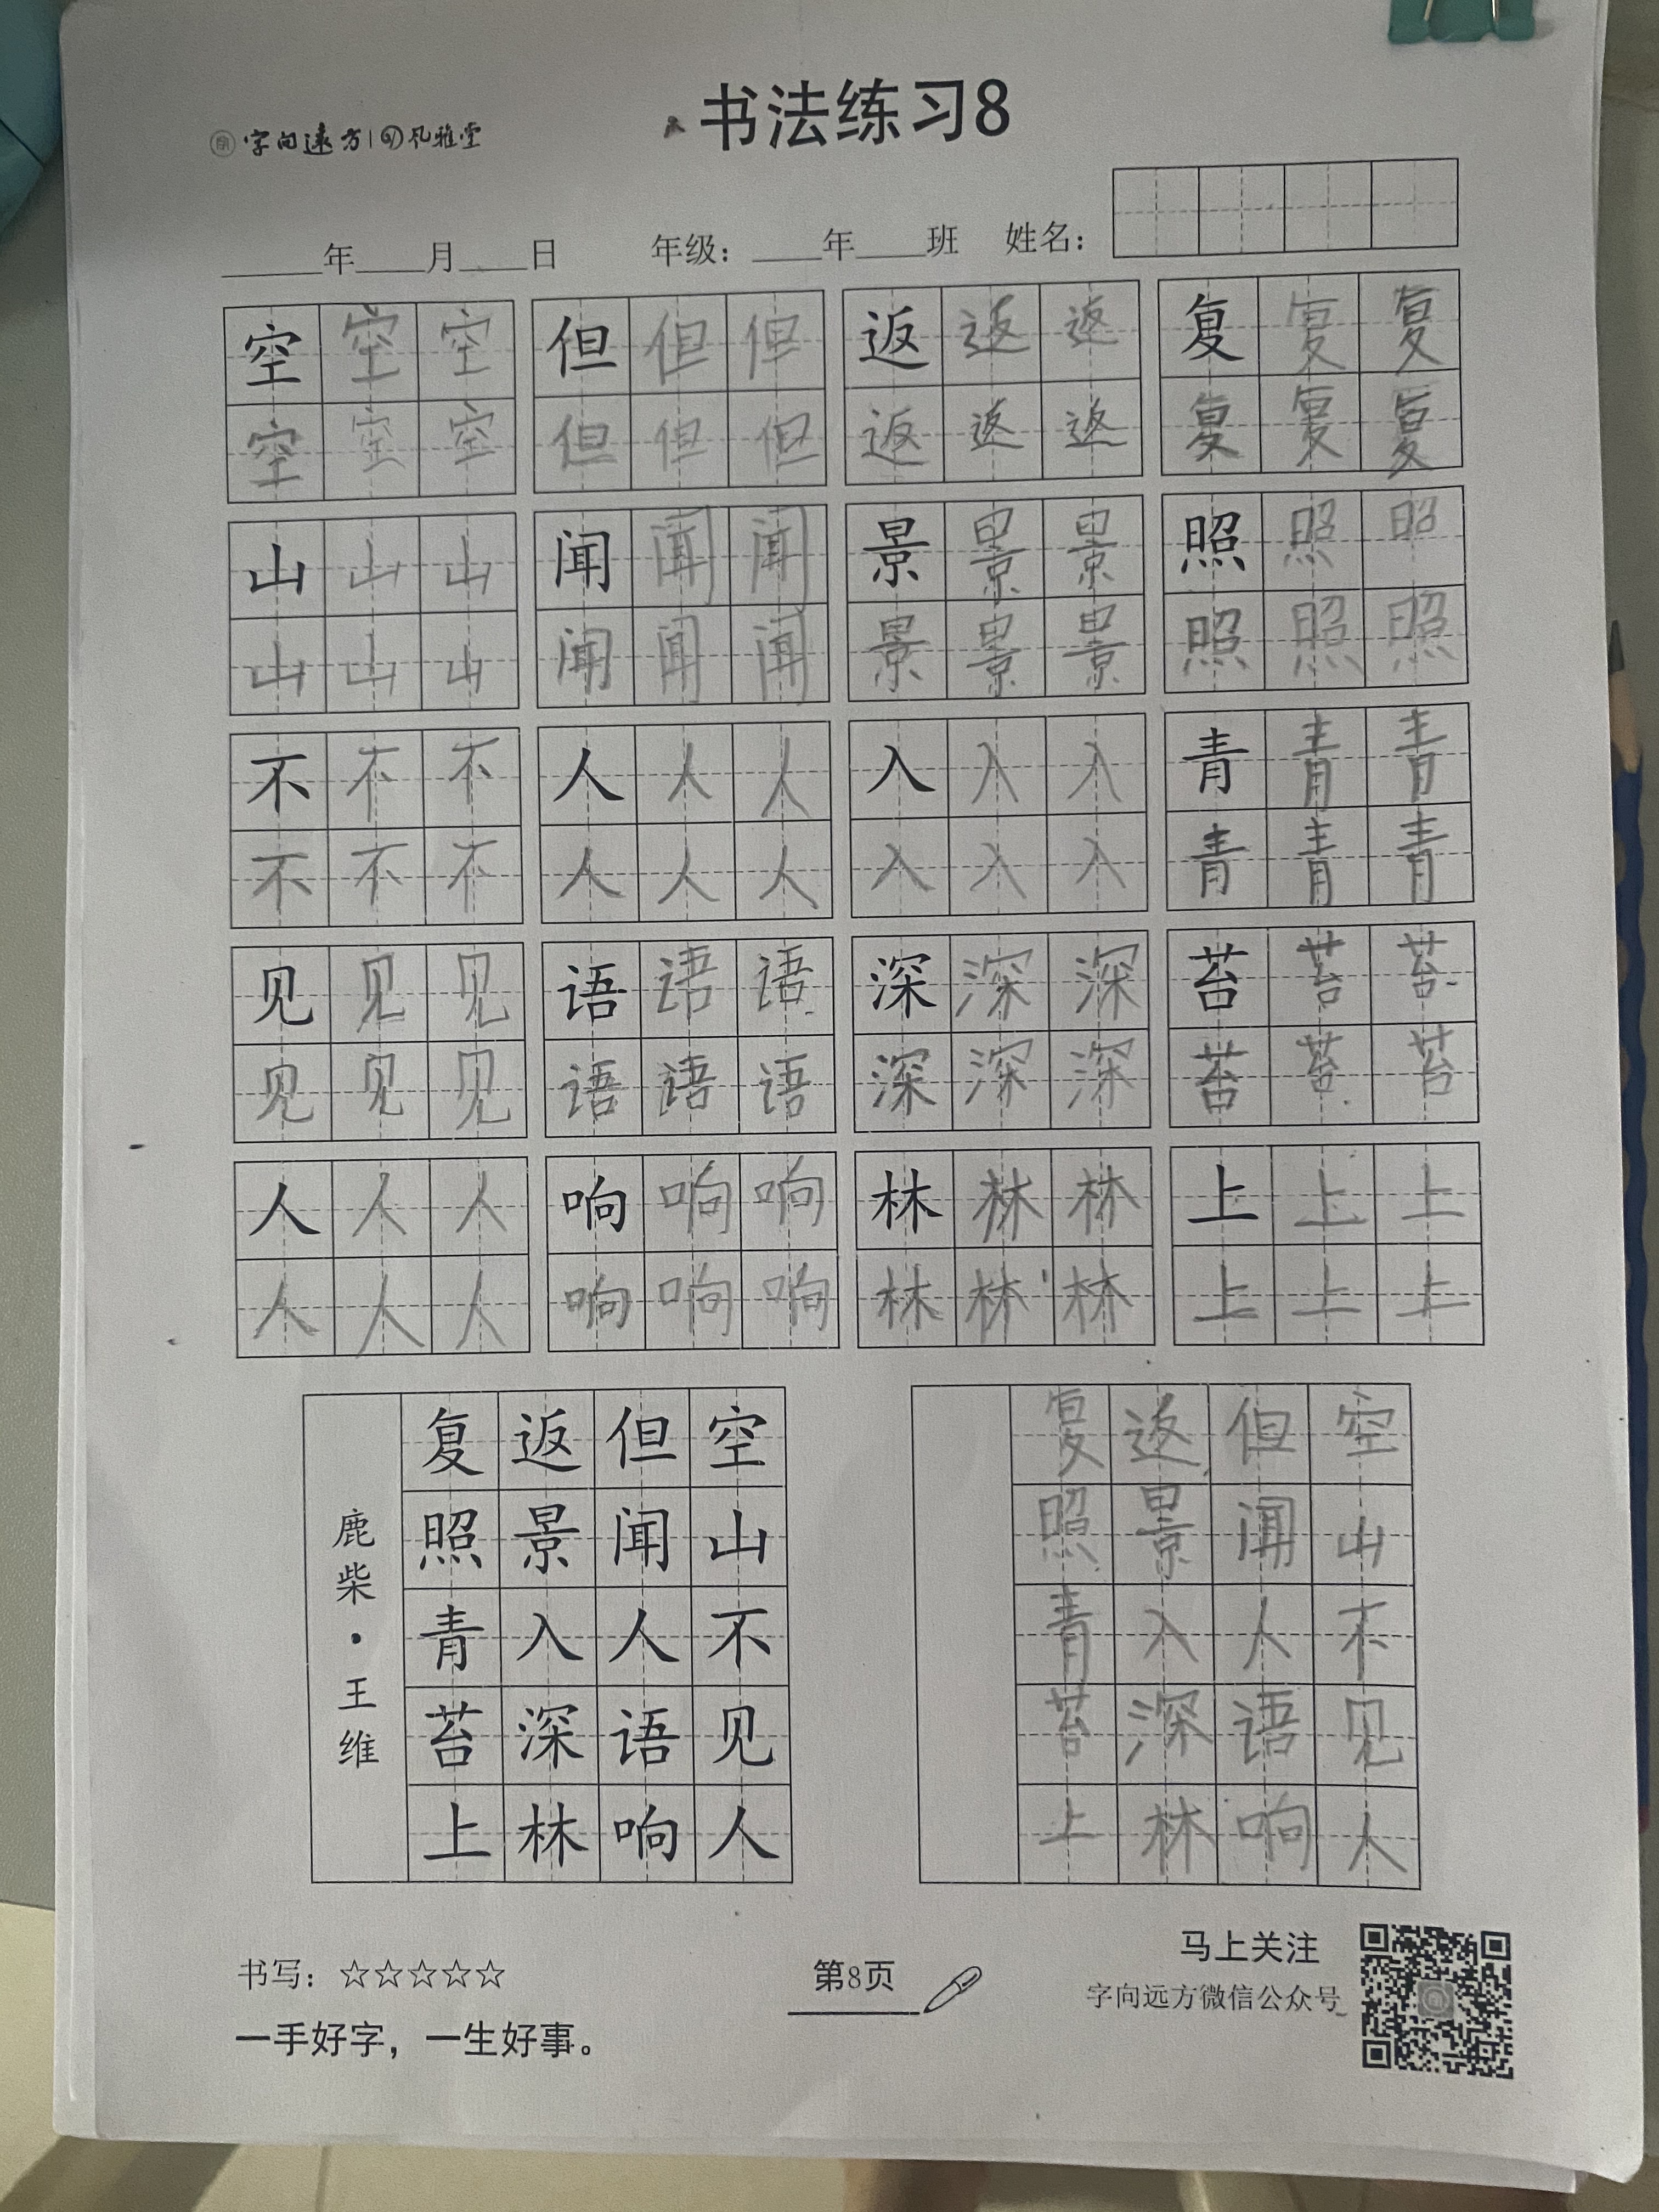 字向远方 凡雅堂
书法练习8
____年____月____日 年级：____年____班 姓名：
空空空 但但但 返返返 复复复
空空空 但但但 返返返 复复复
山山山 闻闻闻 景景景 照照照
山山山 闻闻闻 景景景 照照照
不不不 人人人 入入入 青青青
不不不 人人人 入入入 青青青
见见见 语语语 深深深 苔苔苔
见见见 语语语 深深深 苔苔苔
人人人 响响响 林林林 上上上
人人人 响响响 林林林 上上上
空山不见人
但闻人语响
返景入深林
复照青苔上
鹿柴·王维
空山不见人
但闻人语响
返景入深林
复照青苔上
书写：☆☆☆☆☆
一手好字，一生好事。
第8页
马上关注
字向远方微信公众号